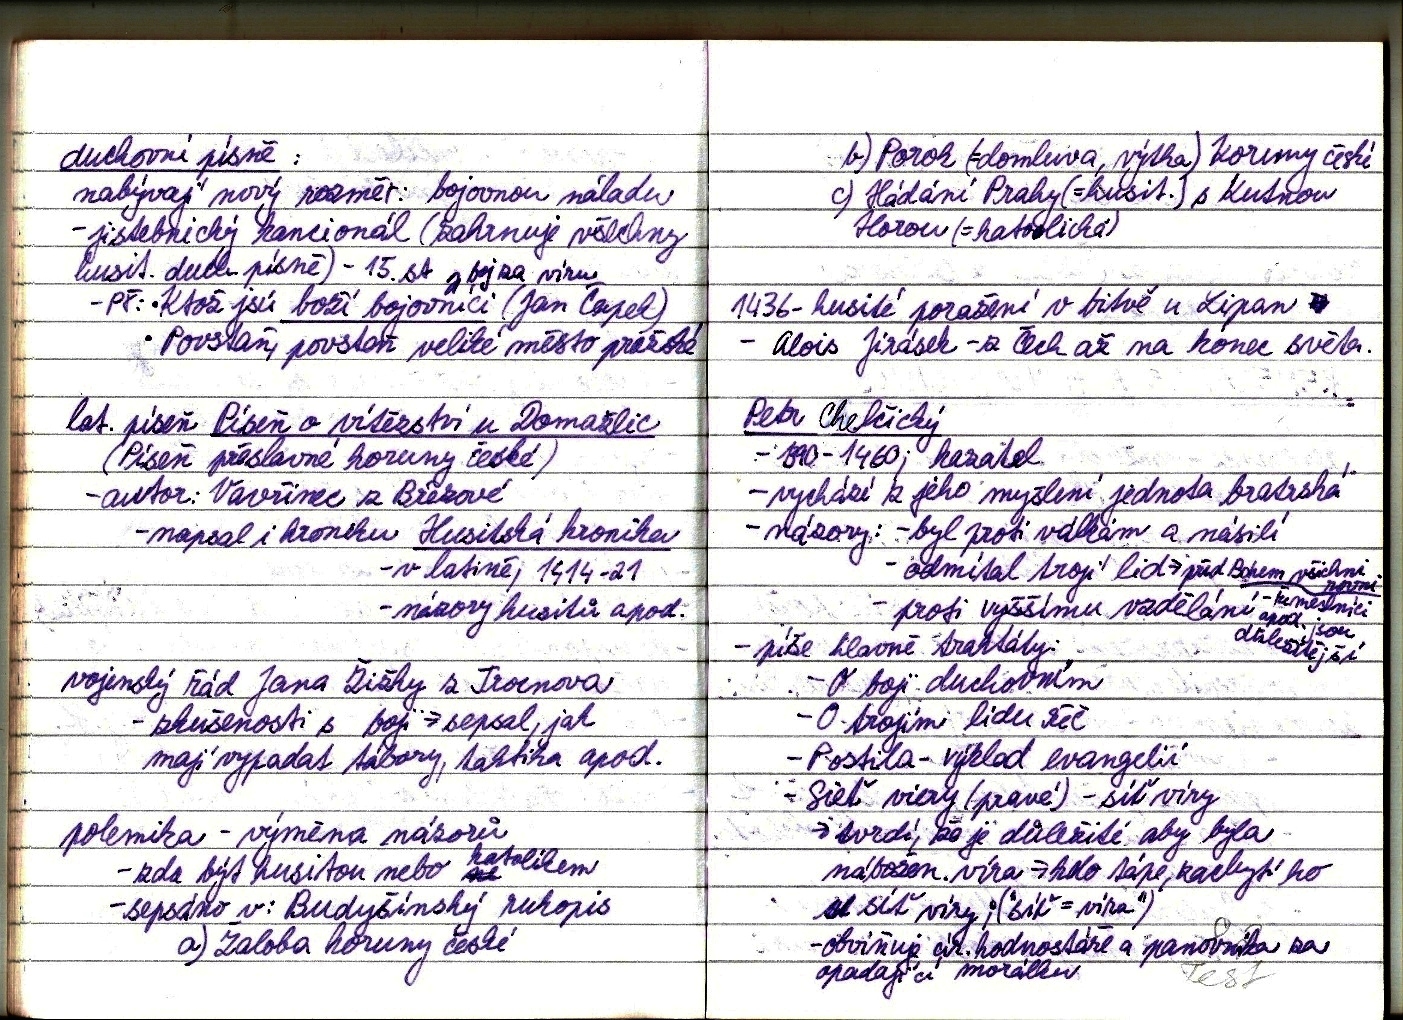 duchovní písně :
nabývají nový rozměr: bojovnou náladu
- jistebnický kancionál (zahrnuje všechny
husit. duch. písně) - 15. st
boj za víru
- Př: • Ktož jsú boží bojovníci (Jan Čapek)
• Povstaň, povstaň veliké město pražské
lat. píseň Píseň o vítězství u Domažlic
(Píseň přeslavné koruny české)
- autor: Vavřinec z Březové
- napsal i kroniku Husitská kronika
- v latině, 1414-21
- názory husitů apod.
vojenský řád Jana Žižky z Trocnova
- zkušenosti s boji → sepsal, jak
mají vypadat tábory, taktika apod.
polemika - výměna názorů
- zda být husitou nebo katolíkem
- sepsáno v: Budyšínský rukopis
a) Žaloba koruny české
b) Porok (=domluva, výtka) Koruny české
c) Hádání Prahy (=husit.) s Kutnou
Horou (=katolická)
1436 - husité poražení v bitvě u Lipan
- Alois Jirásek - z Čech až na konec světa.
Petr Chelčický
- 1390 - 1460; kazatel
- vychází z jeho myšlení jednota bratrská
- názory: - byl proti válkám a násilí
- odmítal trojí lid → před Bohem všichni rovni
- proti vyššímu vzdělání - řemeslníci
apod. jsou
důležitější
- píše hlavně traktáty:
- O boji duchovním
- O trojím lidu řeč
- Postila - výklad evangelií
- Sieť viery (pravé) - síť víry
→ tvrdí, že je důležité aby byla
nábožen. víra → kdo tápe, zachytí ho
síť víry; ("síť = víra")
- obviňuje cír. hodnostáře a panovníka za
opadající morálku
Test